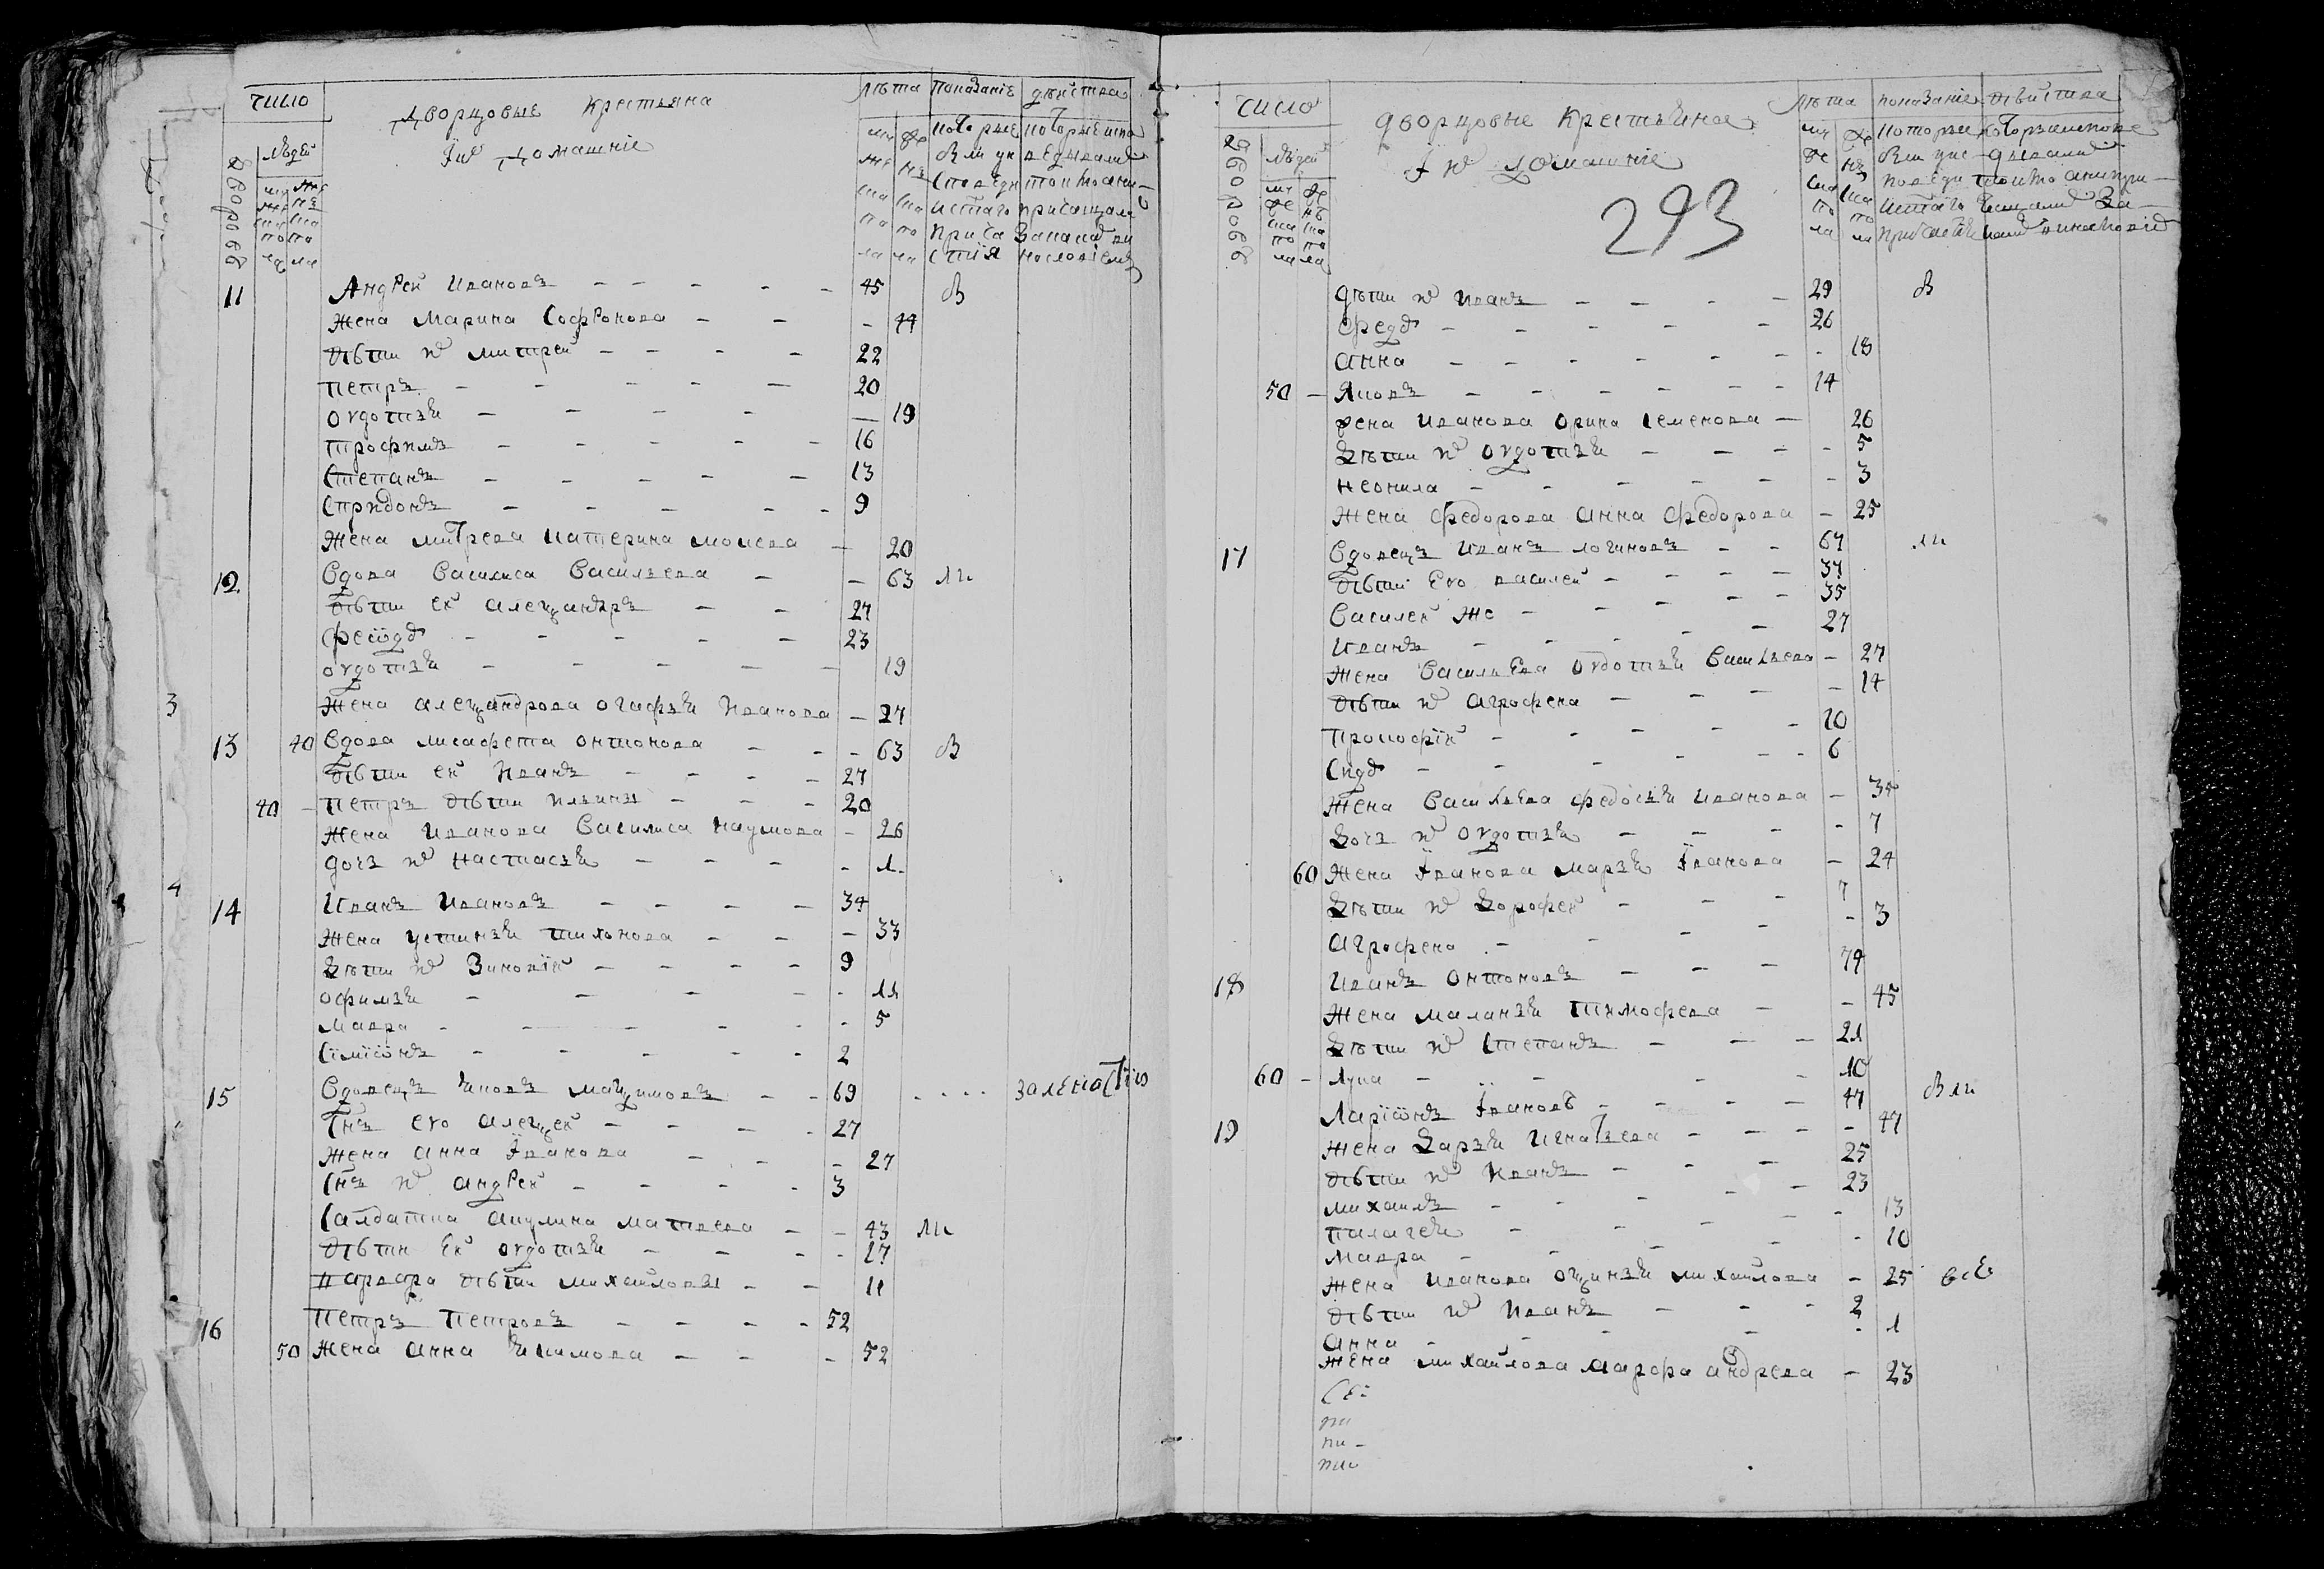 число
дворцовые крестьяна
лѣта показаніе дѣйства
людей
дворовъ
11 Андрей Ивановъ 45 в
Жена Марина Софронова 44
дѣти их митрей 22
петръ 20
овдотья 19
трофимъ 16
Степанъ 13
Спридонъ 9
Жена митрева катерина мосеева 20
12 Вдова Василиса Васильева 63 ли
дѣти ей александръ 27
феѡдоръ 23
овдотья 19
3
Жена александрова огафья Иванова 27
13 40 Вдова лисафета онтонова 63 в
дѣти ей Иванъ 27
40 петръ дѣти ильины 20
Жена Иванова Василиса наумова 26
дочь их настасья 1
4
14 Иванъ Ивановъ 34
Жена устинья тихонова 33
дѣти их Зиновій 9
офимья 11
мавра 5
Сімѡнъ 2
15 Вдовецъ яковъ маѯимовъ 69 заленостію
Снъ его алеѯей 27
Жена анна Іванова 27
Снъ их андрей 3
Салдатка акулина матвева 43 ли
дѣти Ей овдотья 17
варвара дѣти михайловы 11
16 Петръ Петровъ 52
50 Жена анна якимова 52
число
дворцовые крестьяна
лѣта показаніе дѣйства
293
дворовъ
людей
дѣти их Иванъ 29 в
федоръ 26
анна 18
50 Яковъ 14
жена Иванова орина семенова 26
дѣти их овдотья 5
неонила 3
Жена федорова анна федорова 25
17 Вдовецъ Иванъ логиновъ 67 ли
дѣти Его василей 37
Василей же 35
Иванъ 27
Жена Васильева овдотья Васильева 27
дѣти их агрофена 14
прокофій 10
Сидоръ 6
Жена Васильева федосья Иванова 34
дочь их овдотья 7
60 Жена Іванова марья Іванова 24
дѣти их дорофей 7
агрофена 3
18 Иванъ онтоновъ 74
Жена маланья тимофева 45
дѣти их степанъ 21
60 Лука 10
19 Ларіѡнъ Івановъ 47 в ли
Жена дарья игнатьева 47
дѣти их Иванъ 25
михаилъ 23
палагея 13
мавра 10
Жена Иванова оѯинья михайлова 25 всѣ
дѣти их Иванъ 2
анна 1
Жена михайлова марфа андрева 23